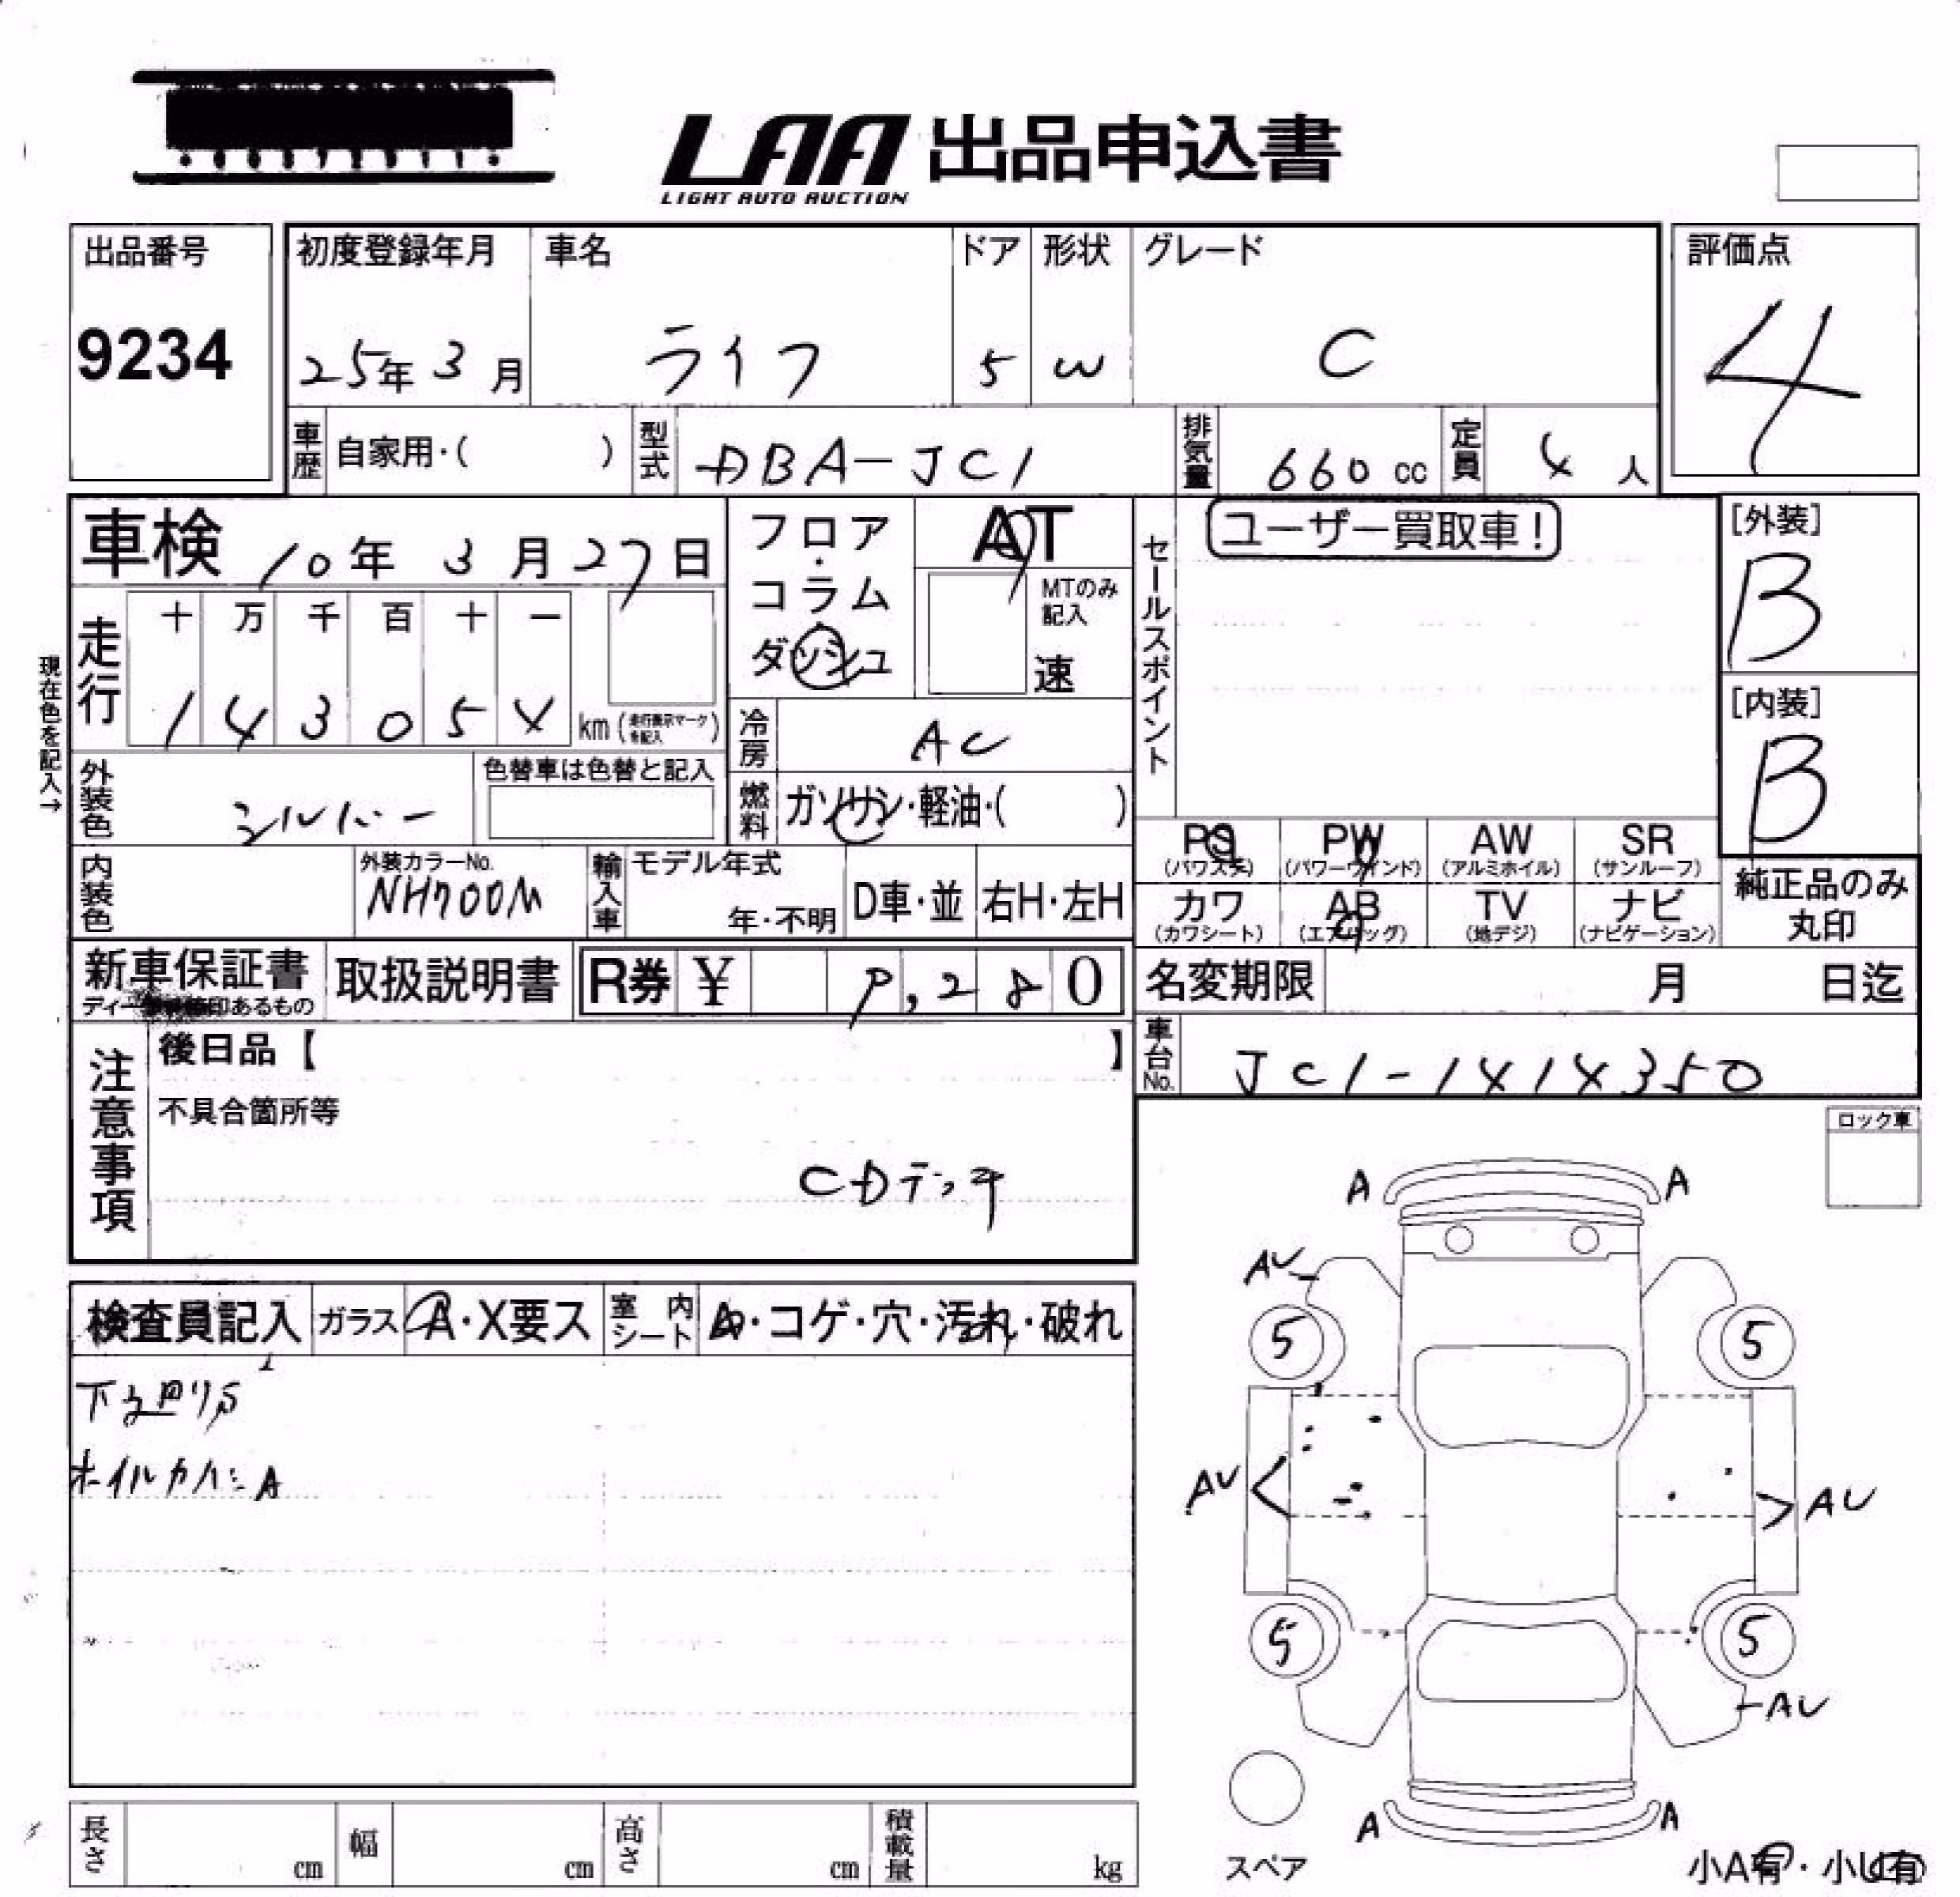 LAA 出品申込書
LIGHT AUTO AUCTION
出品番号
9234
初度登録年月
25年 3月
車名
ライフ
ドア
5
形状
W
グレード
C
評価点
4
車歴
自家用・( )
型式
DBA-JC1
排気量
660 cc
定員
4 人
車検 10年 3月 27日
フロア・コラム・ダッシュ
AT
MTのみ記入
速
セールスポイント
ユーザー買取車!
[外装]
B
[内装]
B
現在色を記入→
走行
十 万 千 百 十 一
1 4 3 0 5 4
km (走行表示マークを記入)
冷房
AC
外装色
シルバー
色替車は色替と記入
燃料
ガソリン・軽油・( )
PS
(パワステ)
PW
(パワーウインド)
AW
(アルミホイル)
SR
(サンルーフ)
カワ
(カワシート)
AB
(エアバッグ)
TV
(地デジ)
ナビ
(ナビゲーション)
純正品のみ丸印
内装色
外装カラーNo.
NH700M
輸入車
モデル年式
年・不明
D車・並
右H・左H
新車保証書
取扱説明書
R券 ¥ 9,280
名変期限 月 日迄
車台No.
JC1-1414350
注意事項
後日品【 】
不具合箇所等
CDデッキ
ロック車
検査員記入
ガラス
A・X要ス
室内シート
A・コゲ・穴・汚れ・破れ
ホイルカバーA
A A
AU
5 5
AU AU
5 5
AU
A A
スペア
小A有・小U有
長さ cm
幅 cm
高さ cm
積載量 kg